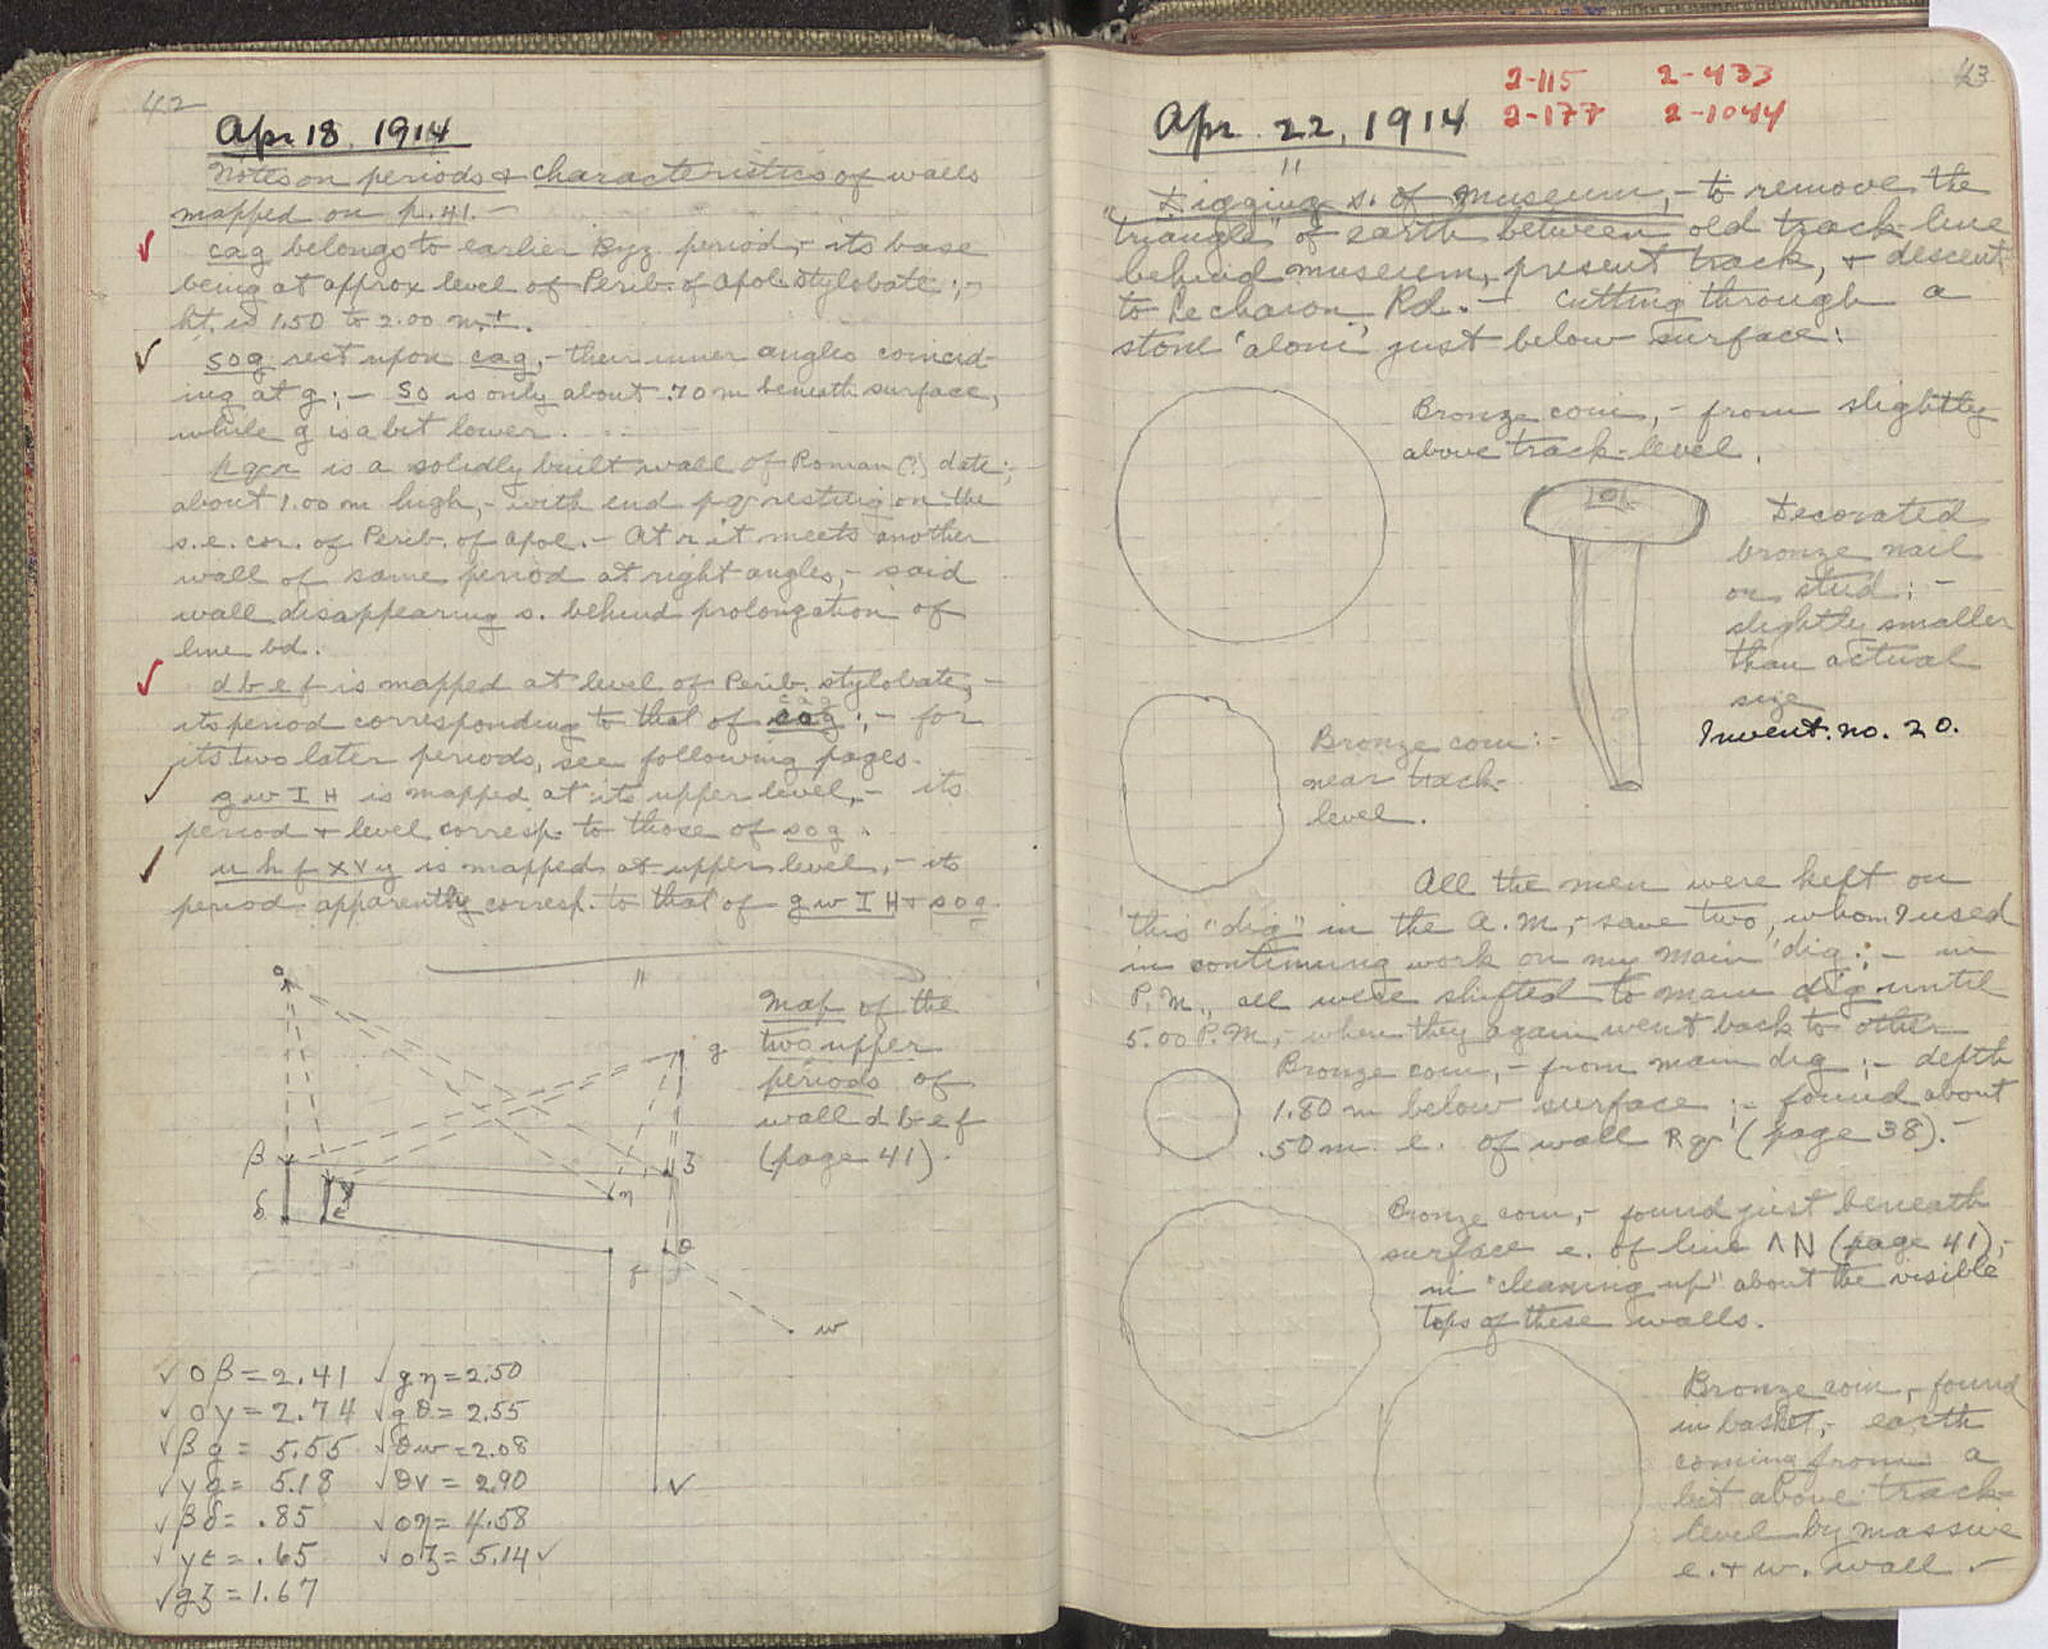 42
Apr. 18. 1914
Notes on periods & characteristics of walls
mapped on p. 41. —
cag belongs to earlier Byz. period, - its base
being at approx level of Perib. of Apol. stylobate ; -
ht. is 1.50 to 2.00 m. ±.
sog rest upon cag, - their inner angles coincid-
ing at g ; — so is only about .70 m beneath surface,
while g is a bit lower.
is a solidly built wall of Roman (?) date ; -
about 1.00 m high, - with end pq resting on the
s.e. cor. of Perib. of Apol. — At r it meets another
wall of same period at right angles, - said
wall disappearing s. behind prolongation of
line bd.
d b e f is mapped at level of Perib. stylobate, -
its period corresponding to that of cag ; - for
its two later periods, see following pages.
g w I H is mapped at its upper level, - its
period & level corresp. to those of sog.
u h f x v y is mapped at upper level, - its
period apparently corresp. to that of g w I H & sog.
"
o
Map of the
two upper
periods of
wall d b e f
(page 41).
g
β
ζ
δ
γ
ε
η
θ
f
w
v
√ oβ = 2.41 √ gη = 2.50
√ oγ = 2.74 √ gθ = 2.55
√ βg = 5.55 √ θw = 2.08
√ γg = 5.18 √ θv = 2.90
√ βδ = .85 √ oη = 4.58
√ γε = .65 √ oζ = 5.14 √
√ gζ = 1.67
43
2-115 2-433
2-177 2-1044
Apr. 22, 1914
"
Digging s. of museum, - to remove the
"triangle" of earth between old track-line
behind museum, present track, & descent
to Lechaion Rd. — Cutting through a
stone 'aloni' just below surface :
Bronze coin, - from slightly
above track-level.
Decorated
bronze nail
or stud ; -
slightly smaller
than actual
size
Invent. no. 20.
Bronze coin : -
near track-
level.
All the men were kept on
this "dig" in the A.M, - save two, whom I used
in continuing work on my main dig ; - in
P.M., all were shifted to main dig until
5.00 P.M, - when they again went back to other
Bronze coin, - from main dig ; - depth
1.80 m below surface ; - found about
.50 m. e. of wall Rg (page 38). —
Bronze coin, - found just beneath
surface e. of line ΛN (page 41), -
in "cleaning up" about the visible
tops of these walls.
Bronze coin, - found
in basket, - earth
coming from a
bit above track-
level by massive
e. & w. wall. —